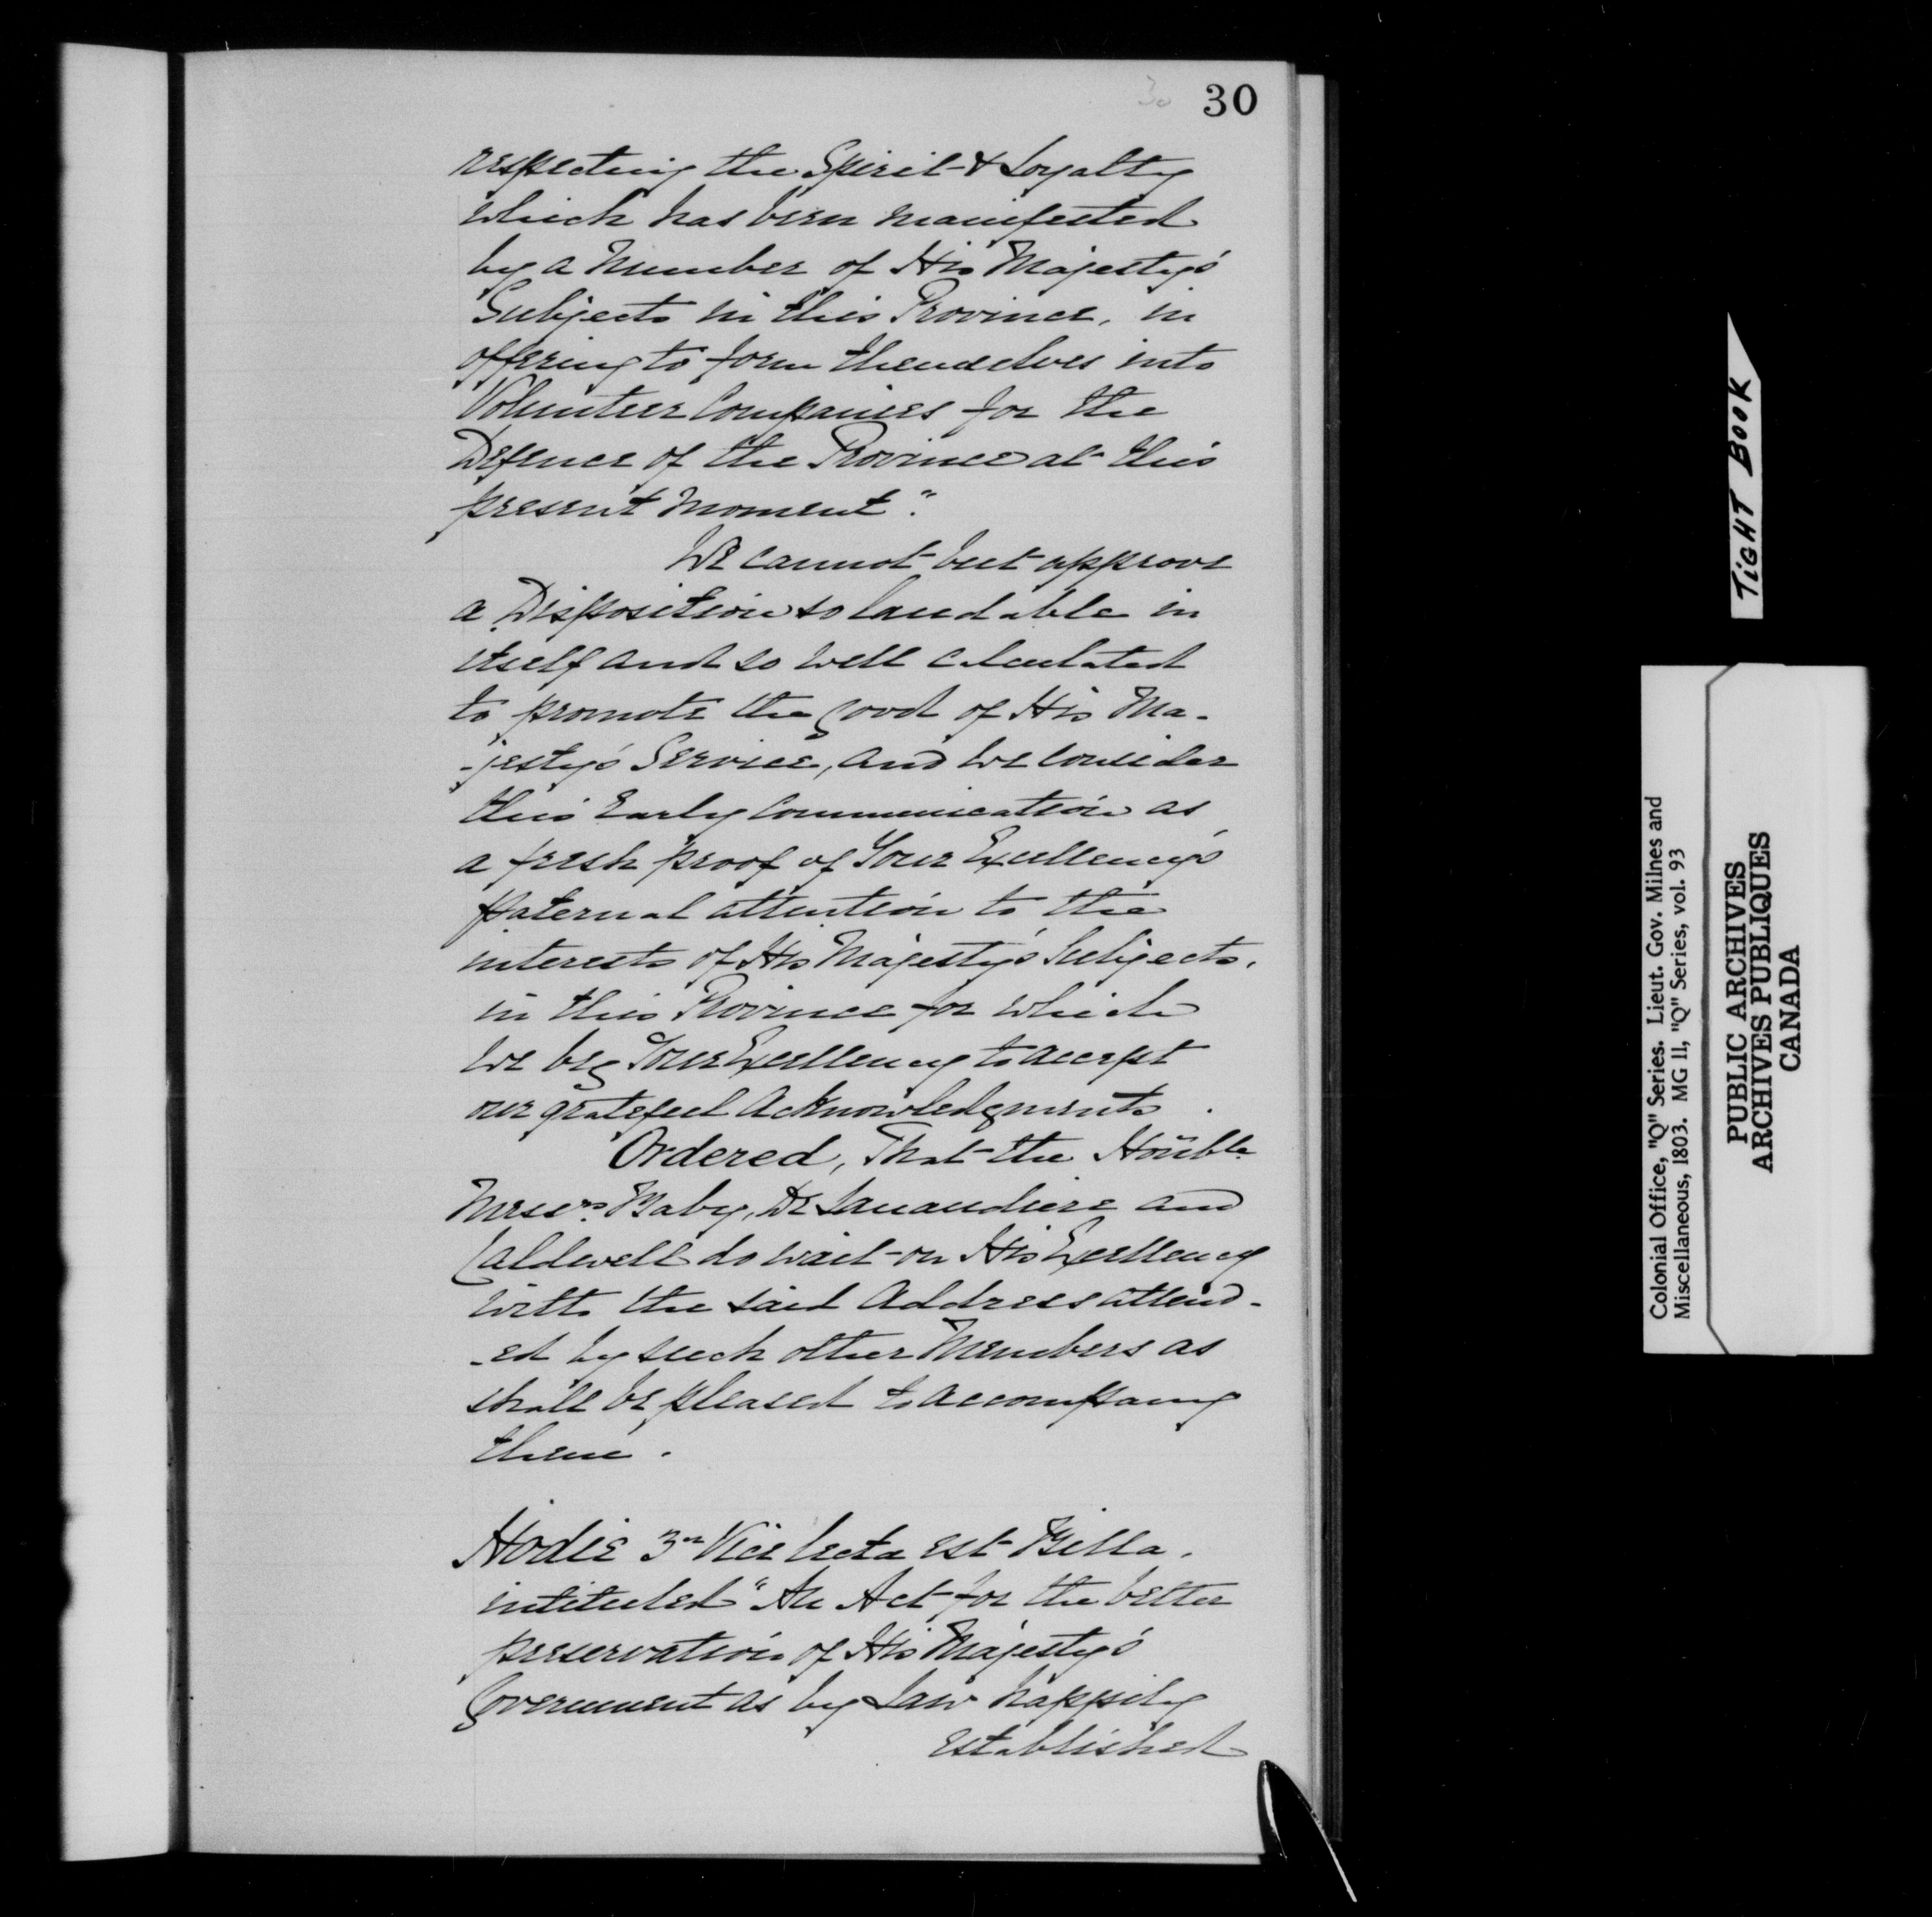 30 30
respecting the Spirit & Loyalty
which has been manifested
by a Number of His Majesty's
Subjects in this Province, in
offering to form themselves into
Volunteer Companies for the
Defence of the Province at this
present Moment".
We cannot but approve
a Disposition so laudable in
itself and so well calculated
to promote the good of His Ma-
-jesty's Service, and we consider
this Early Communication as
a fresh proof of Your Excellency's
paternal attention to the
interests of His Majesty's Subjects,
in this Province for which
we beg Your Excellency to accept
our grateful Acknowledgments.
Ordered, That the Honble
Messrs. Baby, De Lanaudiere and
Caldwell do wait on His Excellency
with the said Address attend-
-ed by such other Members as
shall be pleased to accompany
them.
Hodie 3a Vice lecta est Billa.
intituled "An Act for the better
preservation of His Majesty's
Government as by Law happily
established
TIGHT BOOK
Colonial Office, "Q" Series. Lieut. Gov. Milnes and
Miscellaneous, 1803. MG 11, "Q" Series, vol. 93
PUBLIC ARCHIVES
ARCHIVES PUBLIQUES
CANADA